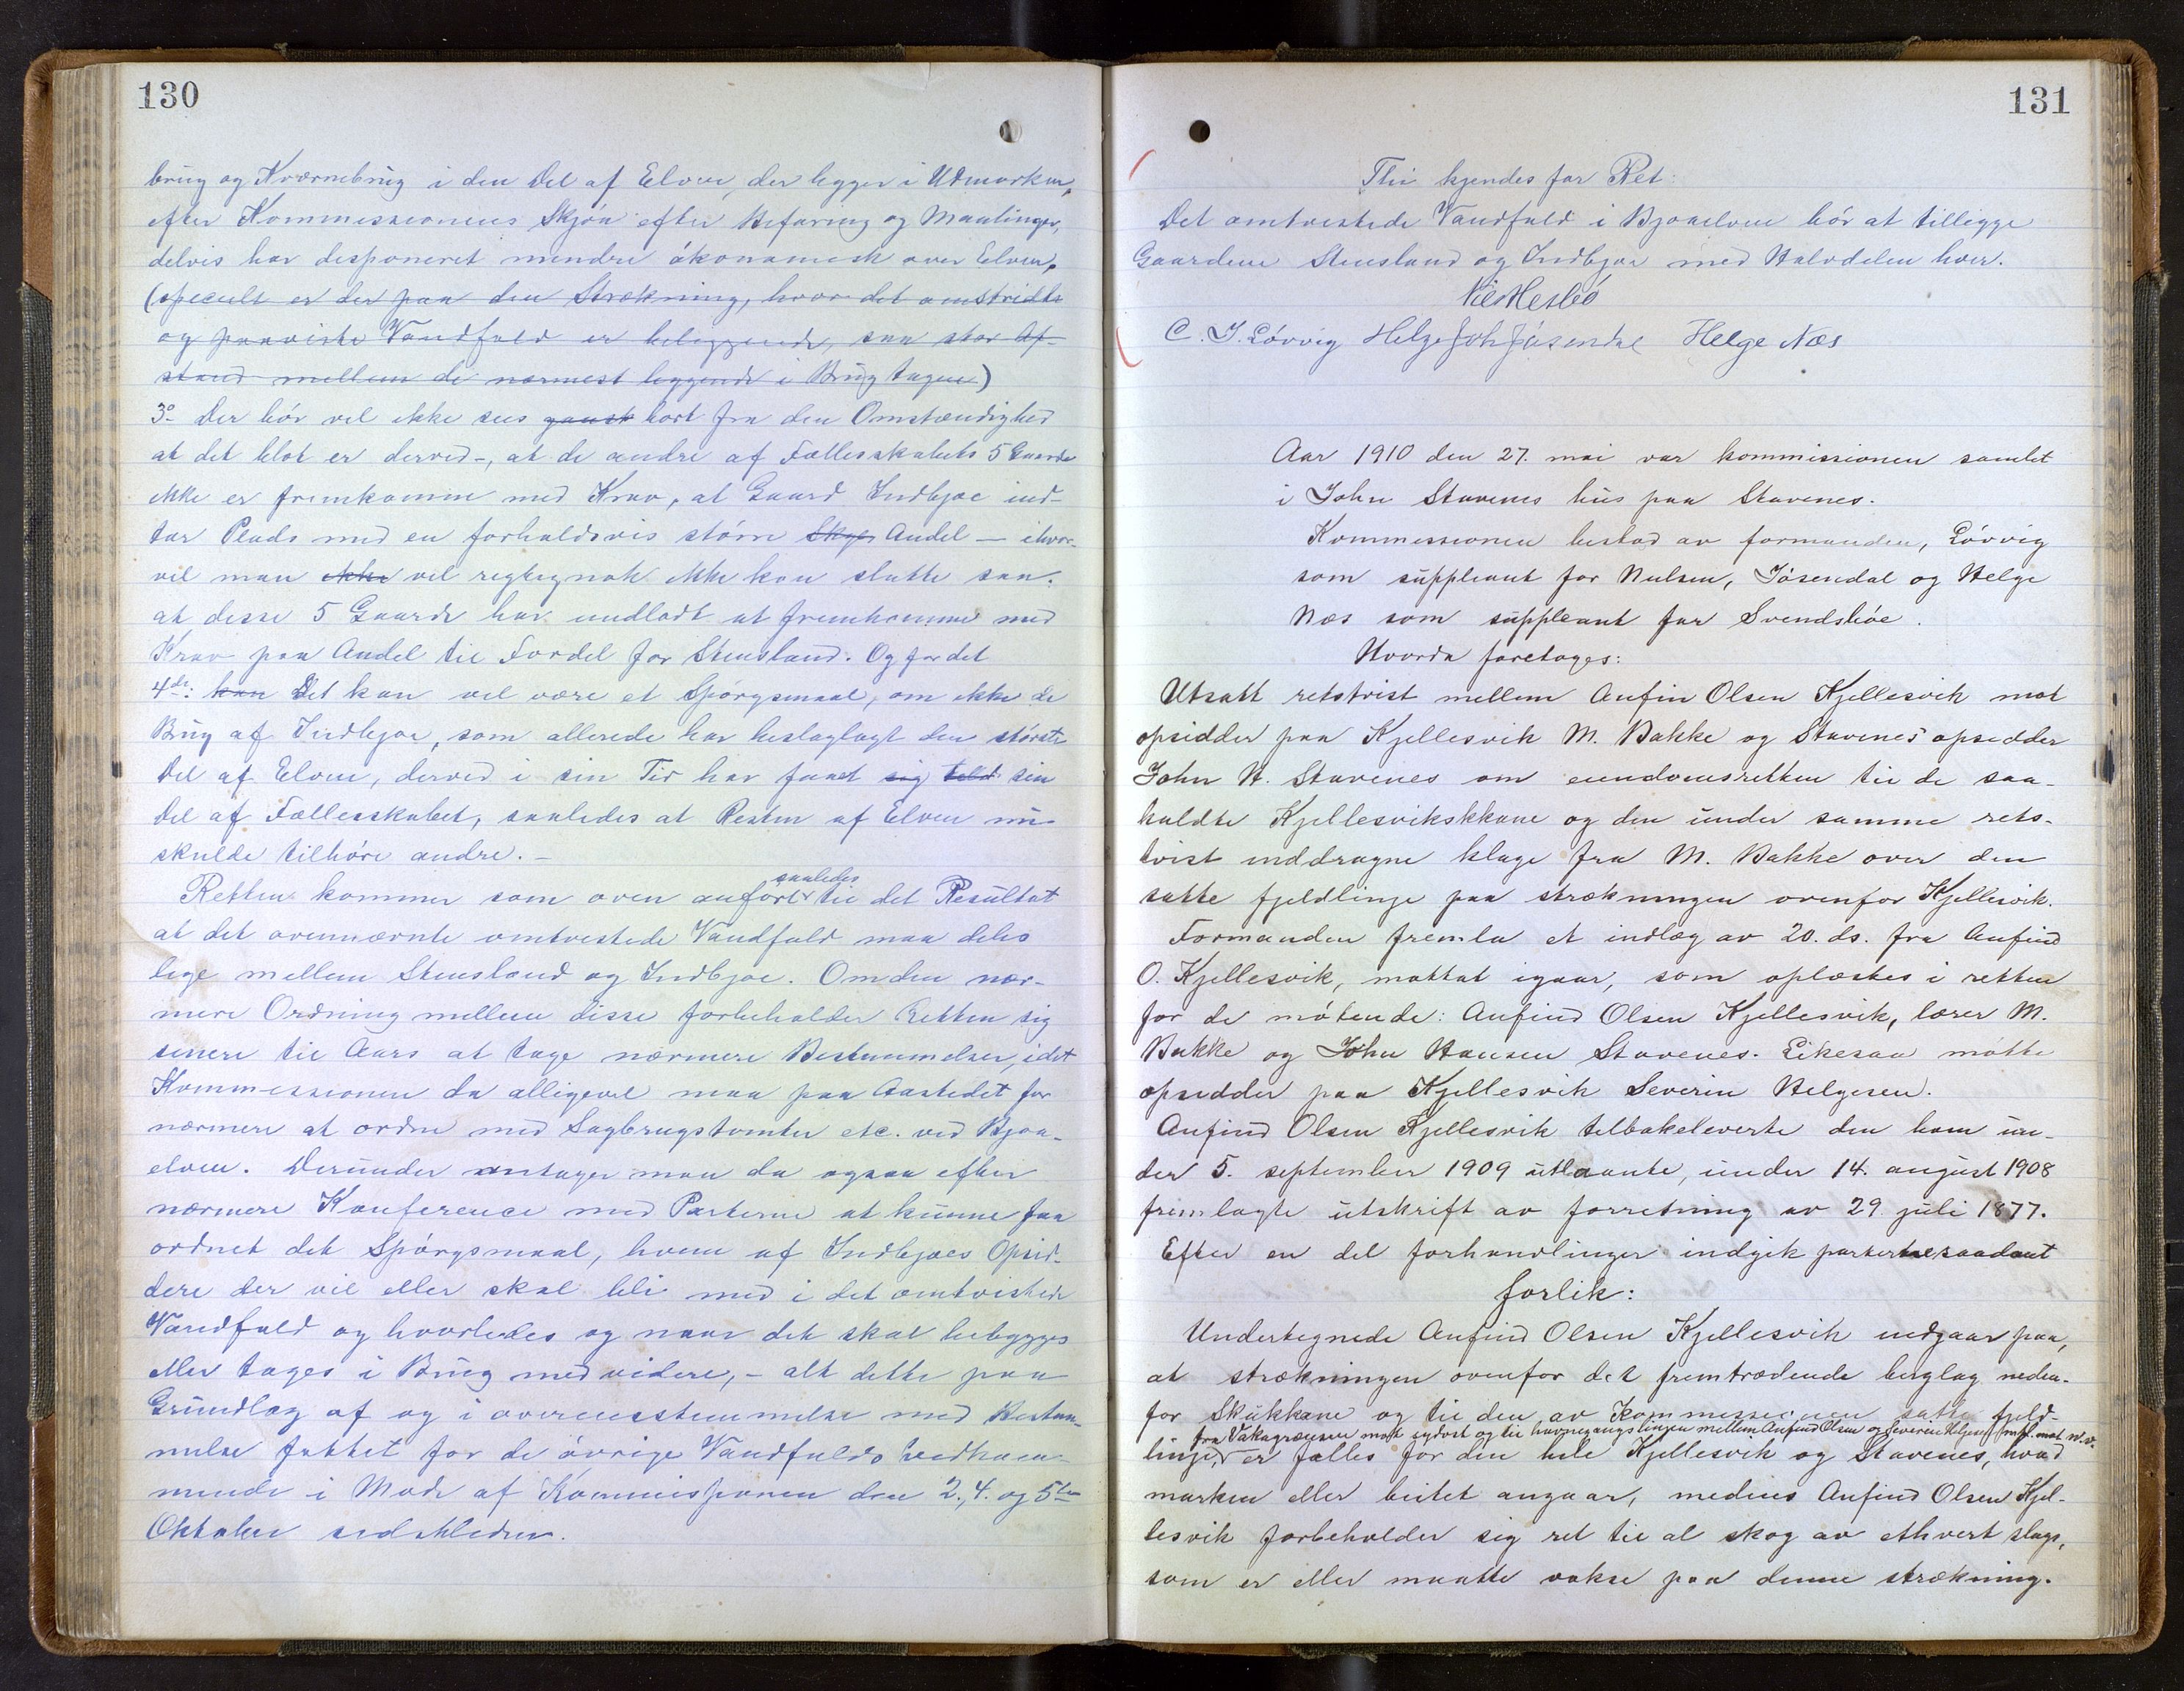 130
brug og Kværnebrug i den Del af Elven, der ligger i Udmarken,
efter Kommissionens Skjøn efter Befaring og Maalinger,
delvis har disponeret mindre økonomisk over Elven,
(specielt er der paa den Strækning, hvor det omstridte
og paaviste Vandfald er beliggende, saa stor Af-
stand mellem de nærmest liggende i Brug tagne)
3o Der bør vel ikke sees ganske bort fra den Omstændighed
at det blot er derved -, at de andre af Fællesskabets 5 Gaarde
ikke er fremkomne med Krav, at Gaard Indbjoe ind-
tar Plads med en forholdsvis større Andel - ihvor-
vel man ikke vel regtignok ikke kan slutte saa.
at disse 5 Gaarde har undladt at fremkomme med
Krav paa Andel til Fordel for Stensland. Og for det
4de: kan Det kan vel være et Spørgsmaal, om ikke de
Brug af Indbjoe, som allerede har beslaglagt den største
Del af Elven, derved i sin Tid har faaet sig sin
Del af Fællesskabet, saaledes at Resten af Elven nu
skulde tilhøre andre. -
saaledes
Retten kommer som oven anført til det Resultat
at det ovennævnte omtvistede Vandfald maa deles
lige mellem Stensland og Indbjoe. Om den nær-
mere Ordning mellem disse forbeholder Retten sig
senere til Aars at tage nærmere Bestemmelser, idet
Kommissionen da alligevel maa paa Aastedet for
nærmere at ordne med Sagbrugstomter etc. ved Bjoa-
elven. Derunder antager man da ogsaa efter
nærmere Konference med Parterne at kunne faa
ordnet det Spørgsmaal, hvem af Indbjoes Opsid-
dere der vil eller skal bli med i det omtvistede
Vandfald og hvorledes og naar det skal bebygges
eller tages i Brug med videre, - alt dette paa
Grundlag af og i overensstemmelse med Bestem-
melse fattet for de øvrige Vandfalds Vedkom-
mende i Møde af Kommissionen den 2., 4. og 5te
Oktober sidstleden.
131
Thi kjendes for Ret:
Det omtvistede Vandfald i Bjoaelven bør at tilligge
Gaardene Stensland og Indbjoe med Halvdelen hver.
C. J. Løvvig Helge Joh Jøsendal Helge Næs
Aar 1910 den 27. mai var kommissionen samlet
i John Stavenes hus paa Stavenes.
Kommissionen bestod av formanden, Løvvig
som suppleant for Nielsen, Jøsendal og Helge
Næs som suppleant for Svendsbøe.
Hvorda foretoges:
Utsatt retstvist mellem Anfin Olsen Kjellesvik mot
opsidder paa Kjellesvik M. Bakke og Stavenes opsidder
John H. Stavenes om eiendomsretten til de saa-
kaldte Kjellesvikskkane og den under samme rets-
tvist inddragne klage fra M. Bakke over den
satte fjeldlinje paa strækningen ovenfor Kjellesvik.
Formanden fremla et indlæg av 20. ds. fra Anfind
O. Kjellesvik, mottat igaar, som oplæstes i retten
for de møtende: Anfind Olsen Kjellesvik, lærer M.
Bakke og John Hansen Stavenes. Likesaa møtte
opsidder paa Kjellesvik Severin Helgesen.
Anfind Olsen Kjellesvik tilbakeleverte den ham un-
der 5. september 1909 utlaante, under 14. august 1908
fremlagte utskrift av forretning av 29. juli 1877.
Efter en del forhandlinger indgik parterne saadant
forlik:
Undertegnede Anfind Olsen Kjellesvik indgaar paa,
at strækningen ovenfor det fremtrædende berglag neden-
for Skukkane og til den av Kommissionen satte fjeld-
fra Vakagrænsen mot sydost og til havnegangslinjen mellem Anfind Olsen og Severin Helgesen mfl. mot n.v.
linje, er fælles for den hele Kjellesvik og Stavenes, hvad
marken eller beitet angaar, mediens Anfind Olsen Kjel-
lesvik forbeholder sig ret til al skog av ethvert slags,
som er eller maatte vokse paa denne strækning.